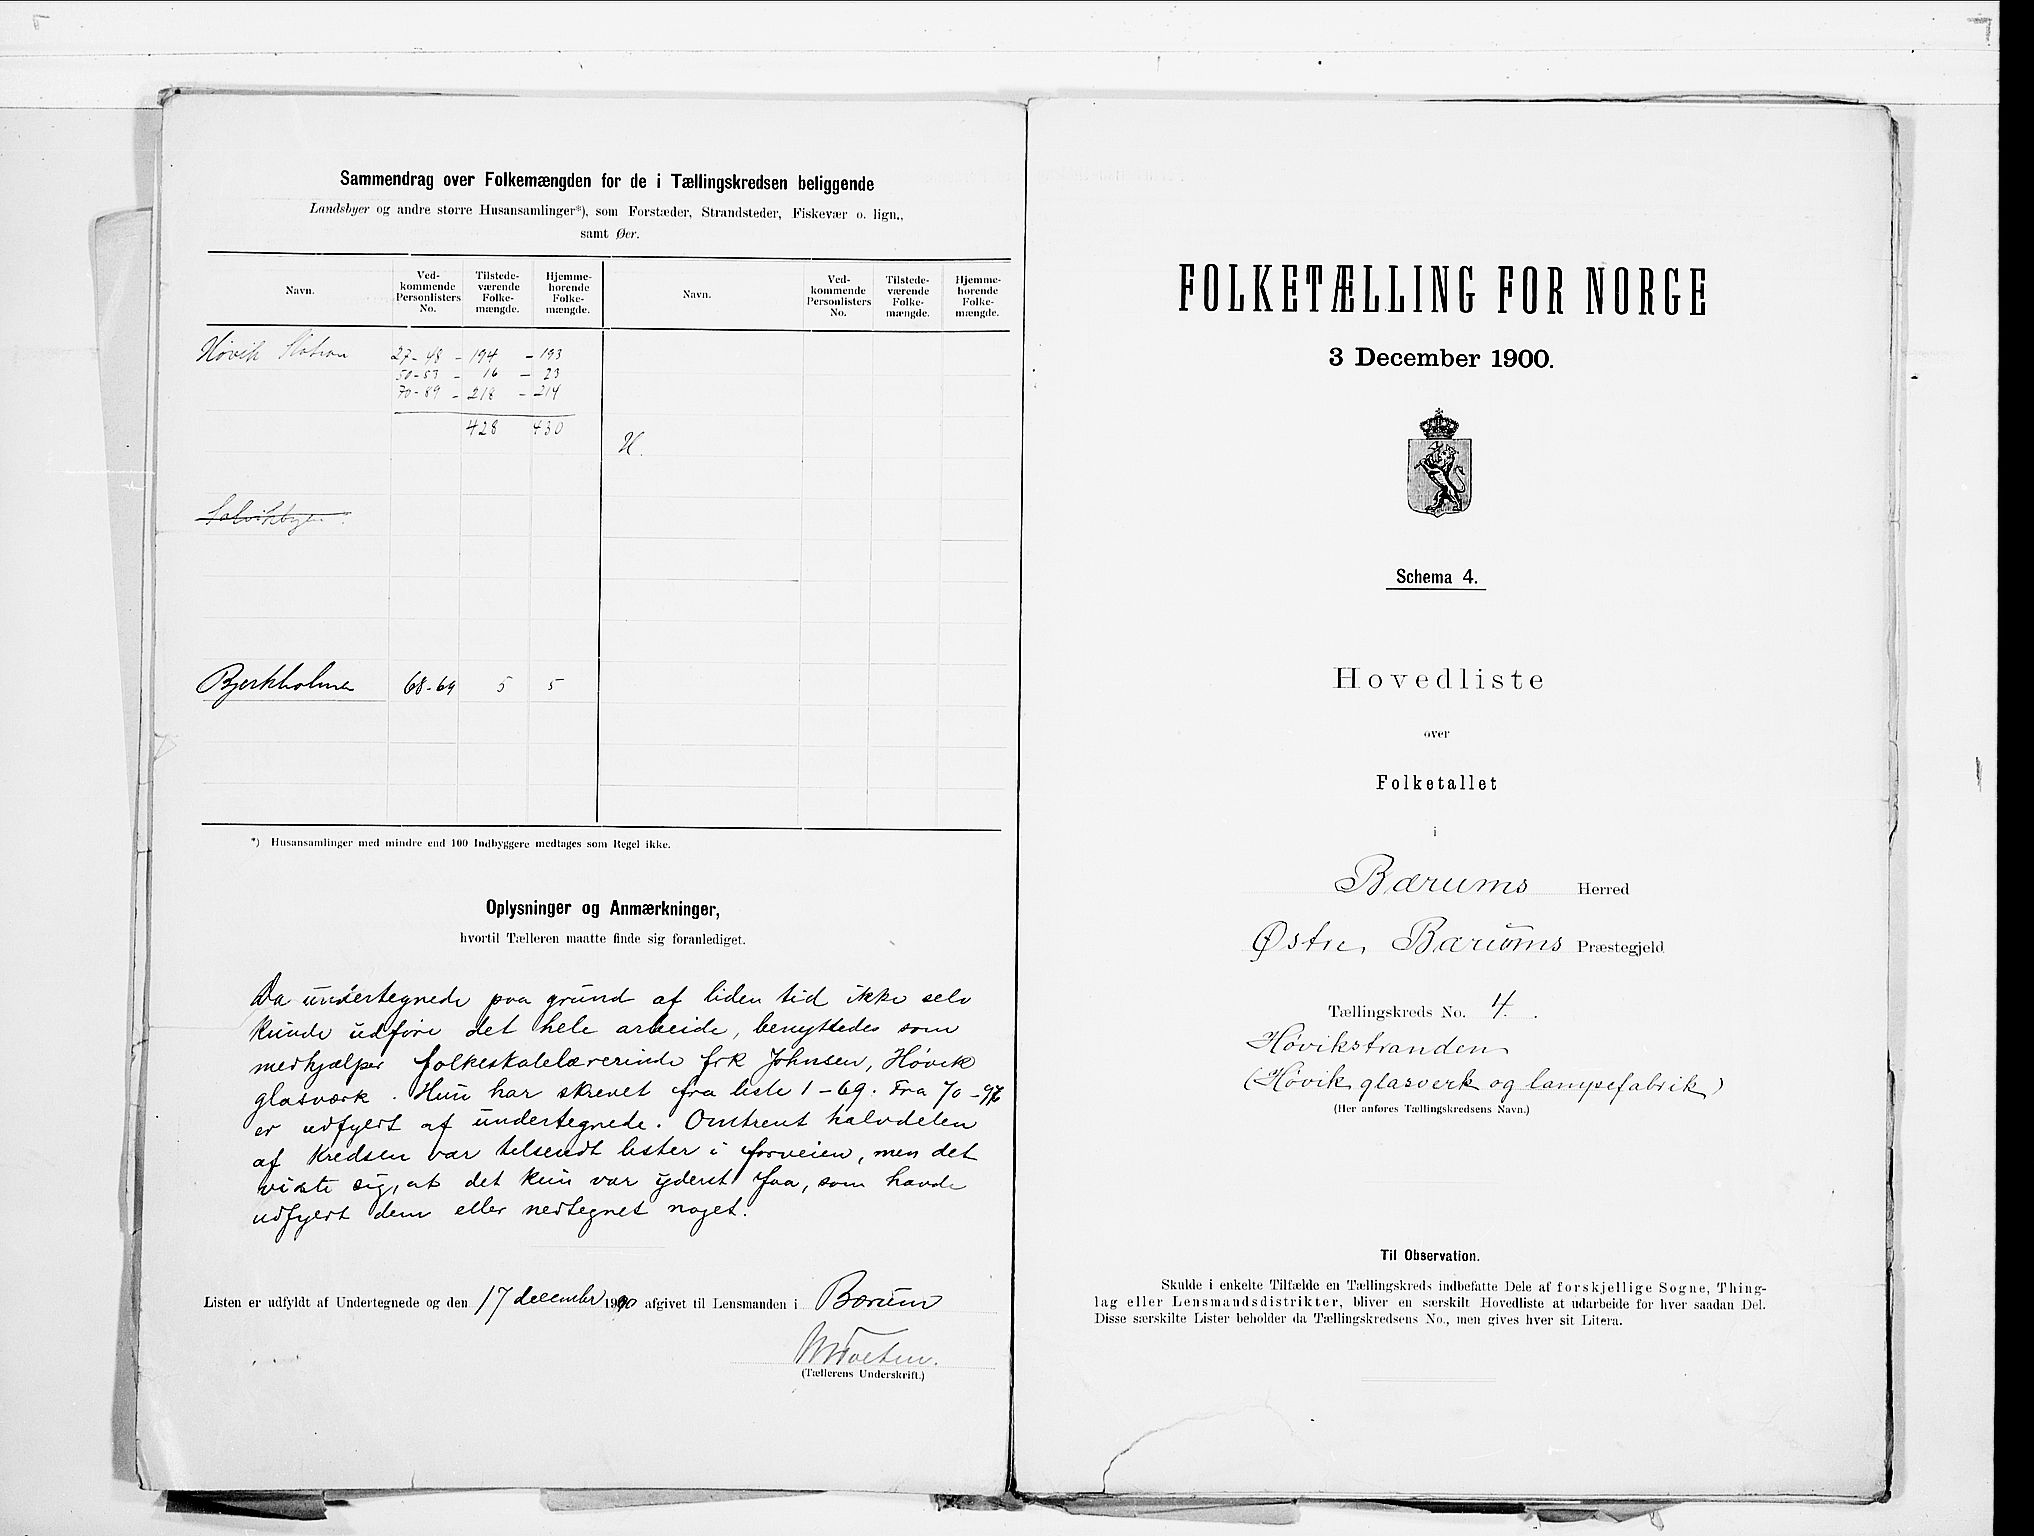 Sammendrag over Folkemængden for de i Tællingskredsen beliggende
Landsbyer og andre større Husansamlinger*), som Forstæder, Strandsteder, Fiskevær o. lign.,
samt Øer.
Navn.
Ved-
kommende
Personlisters
No.
Tilstede-
værende
Folke-
mængde.
Hjemme-
hørende
Folke-
mængde.
Navn.
Ved-
kommende
Personlisters
No.
Tilstede-
værende
Folke-
mængde.
Hjemme-
hørende
Folke-
mængde.
Høvik Station 27-48 - 194 - 193
50-53 - 16 - 23
70-89 - 218 - 214
428 430
H.
Solvikbyen
Bjerkholmen 68-69 5 5
*) Husansamlinger med mindre end 100 Indbyggere medtages som Regel ikke.
Oplysninger og Anmærkninger,
hvortil Tælleren maatte finde sig foranlediget.
Da undertegnede paa grund af liden tid ikke selv
kunde udføre det hele arbeide, benyttedes som
medhjælper folkeskolelærerinde frk Johnsen, Høvik
glasværk. Hun har skrevet fra liste 1-69. Fra 70-96
er udfyldt af undertegnede. Omtrent halvdelen
af kredsen var tilsendt lister i forveien, men det
viste sig, at det kun var yderst faa, som havde
udfyldt dem eller nedtegnet noget.
Listen er udfyldt af Undertegnede og den 17 december 1900 afgivet til Lensmanden i Bærum
(Tællerens Underskrift.)
FOLKETÆLLING FOR NORGE
3 December 1900.
Schema 4.
Hovedliste
over
Folketallet
i
Bærums Herred
Østre Bærums Præstegjeld
Tællingskreds No. 4.
Høvikstranden
(Høvik glasverk og lampefabrik)
(Her anføres Tællingskredsens Navn.)
Til Observation.
Skulde i enkelte Tilfælde en Tællingskreds indbefatte Dele af forskjellige Sogne, Thing-
lag eller Lensmandsdistrikter, bliver en særskilt Hovedliste at udarbeide for hver saadan Del.
Disse særskilte Lister beholder da Tællingskredsens No., men gives hver sit Litera.